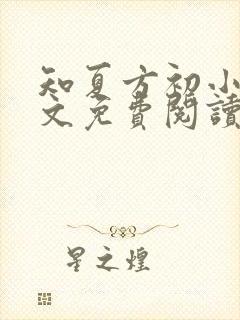 知夏方初小
文免費閱讀
星之煌